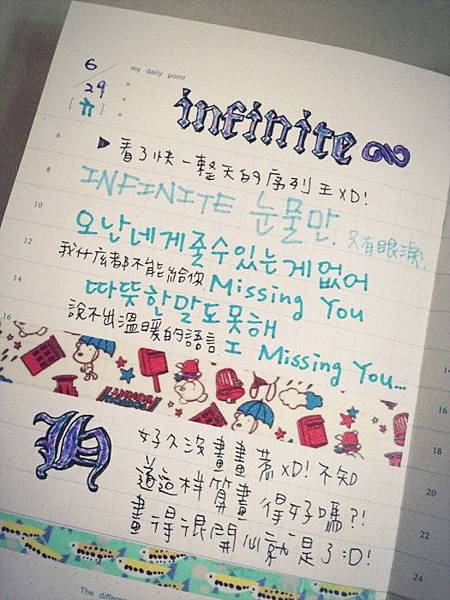 6/29
my daily point
infinite ∞
6
▶看了快一整天的序列王xD!
8
INFINITE 눈물만. 只有眼淚!
10
오 난 네게 줄 수 있는게 없어
12
我什麼都不能給你 Missing You
14
따뜻한 말도 못해
16
說不出溫暖的語言 I Missing You...
好久沒畫畫惹xD! 不知
道這樣算畫得好嗎?!
畫得很開心就是了:D!
16
18
20
22
24
The differe